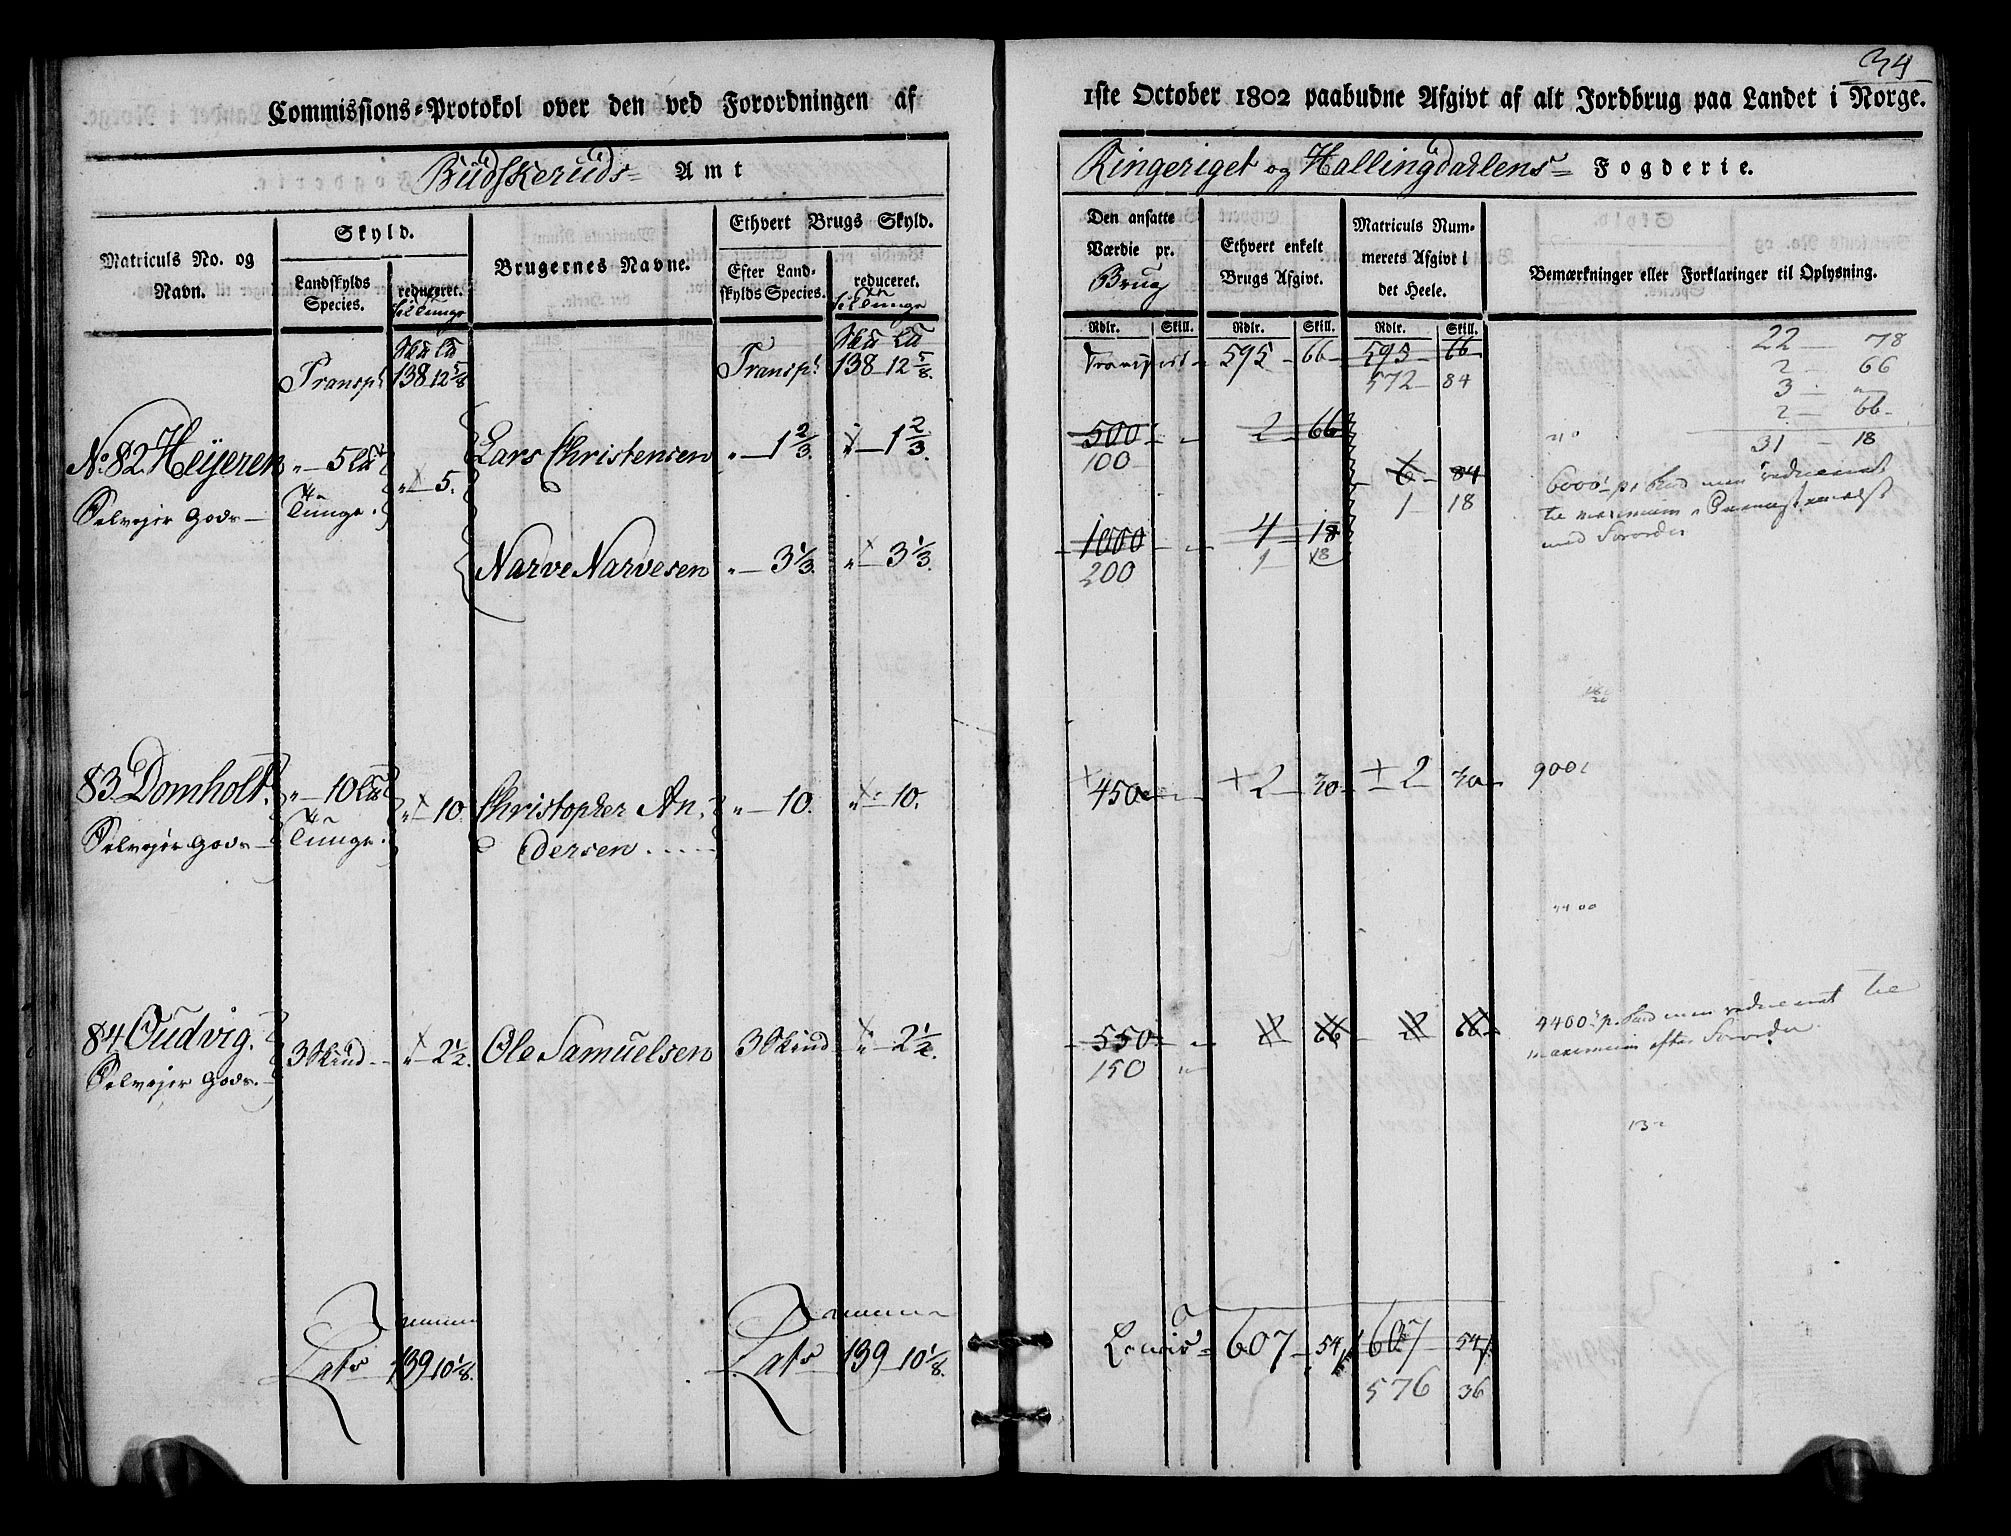 34
Commissions-Protokol over den ved Forordningen af
1ste October 1802 paabudne Afgivt af alt Jordbrug paa Landet i Norge.
Büdskerüds Amt
Ringeriget og Hallingdahlens Fogderie.
Matriculs No. og Navn.
Skyld.
Landskylds Species.
reduceret.
Brugernes Navne.
Ethvert Brugs Skyld.
Efter Landskylds Species.
reduceret.
Den ansatte Værdie pr. Brug
Ethvert enkelt Brugs Afgivt.
Matriculs Nummerets Afgivt i det Heele.
Bemærkninger eller Forklaringer til Oplysning.
Rdlr. Skill. Rdlr. Skill. Rdlr. Skill.
Transpt 138 12 5/8 Transpt 138 12 5/8. Transport 595 66 595 66
572 84
22 78
2 66
3
2 66
31 18
No 82 Heÿeren 5 Tunge 5. Lars Christensen 1 2/3. 1 2/3. 500 2 66
100
Selvejer Gods
6 84
1 18
6000
Narve Narvesen 3 1/3. 3 1/3. 1000 4 18
200 1 18
83 Domholt. 10 10 Christopher An- 10. 10. 450 2 30 2 30 900
Selvejer Gods Tunge. dersen
84 Oudvig. 3 Skind 2 1/2. Ole Samuelsen 3 Skind 2 1/2. 550 2 66 2 66 4400
Selvejer Gods. 150
Summa Summa
Lats 139 10 1/8. Lats 139 10 1/8. 607 54 607 54
576 36